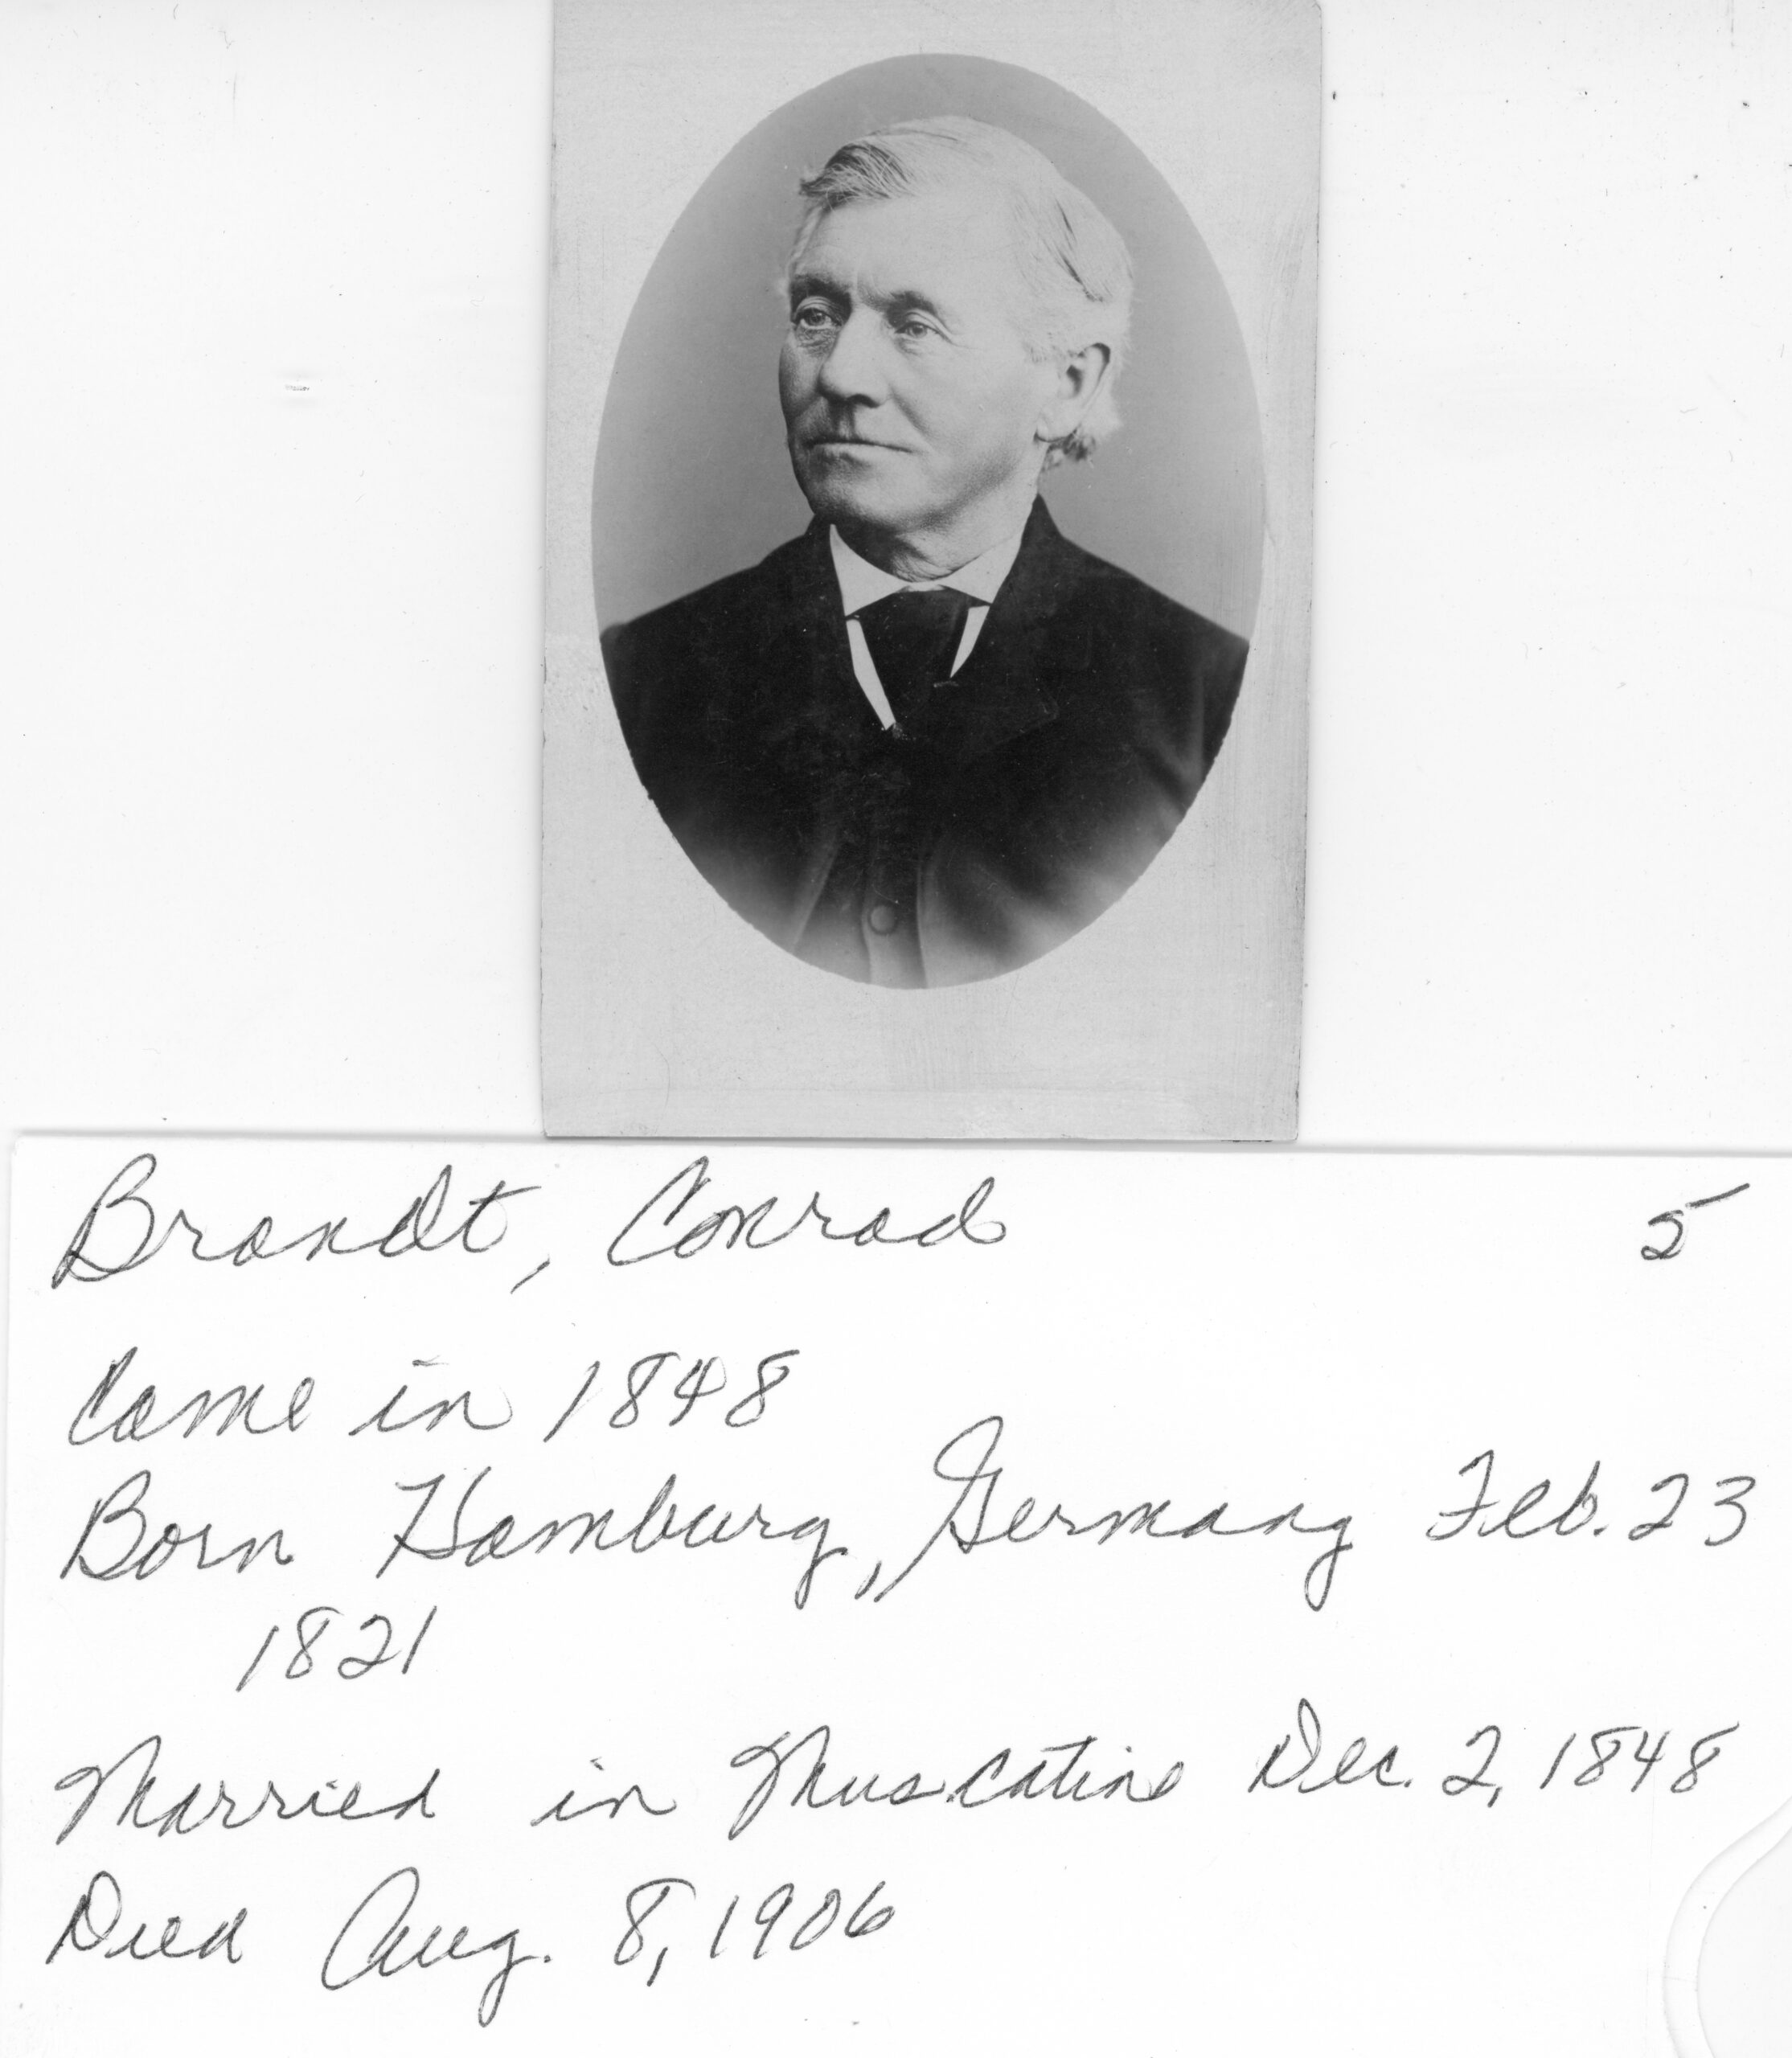 Brandt, Conrad 5
Came in 1848
Born Hamburg, Germany Feb. 23
1821
Married in Muscatine Dec. 2, 1848
Died Aug. 8, 1906